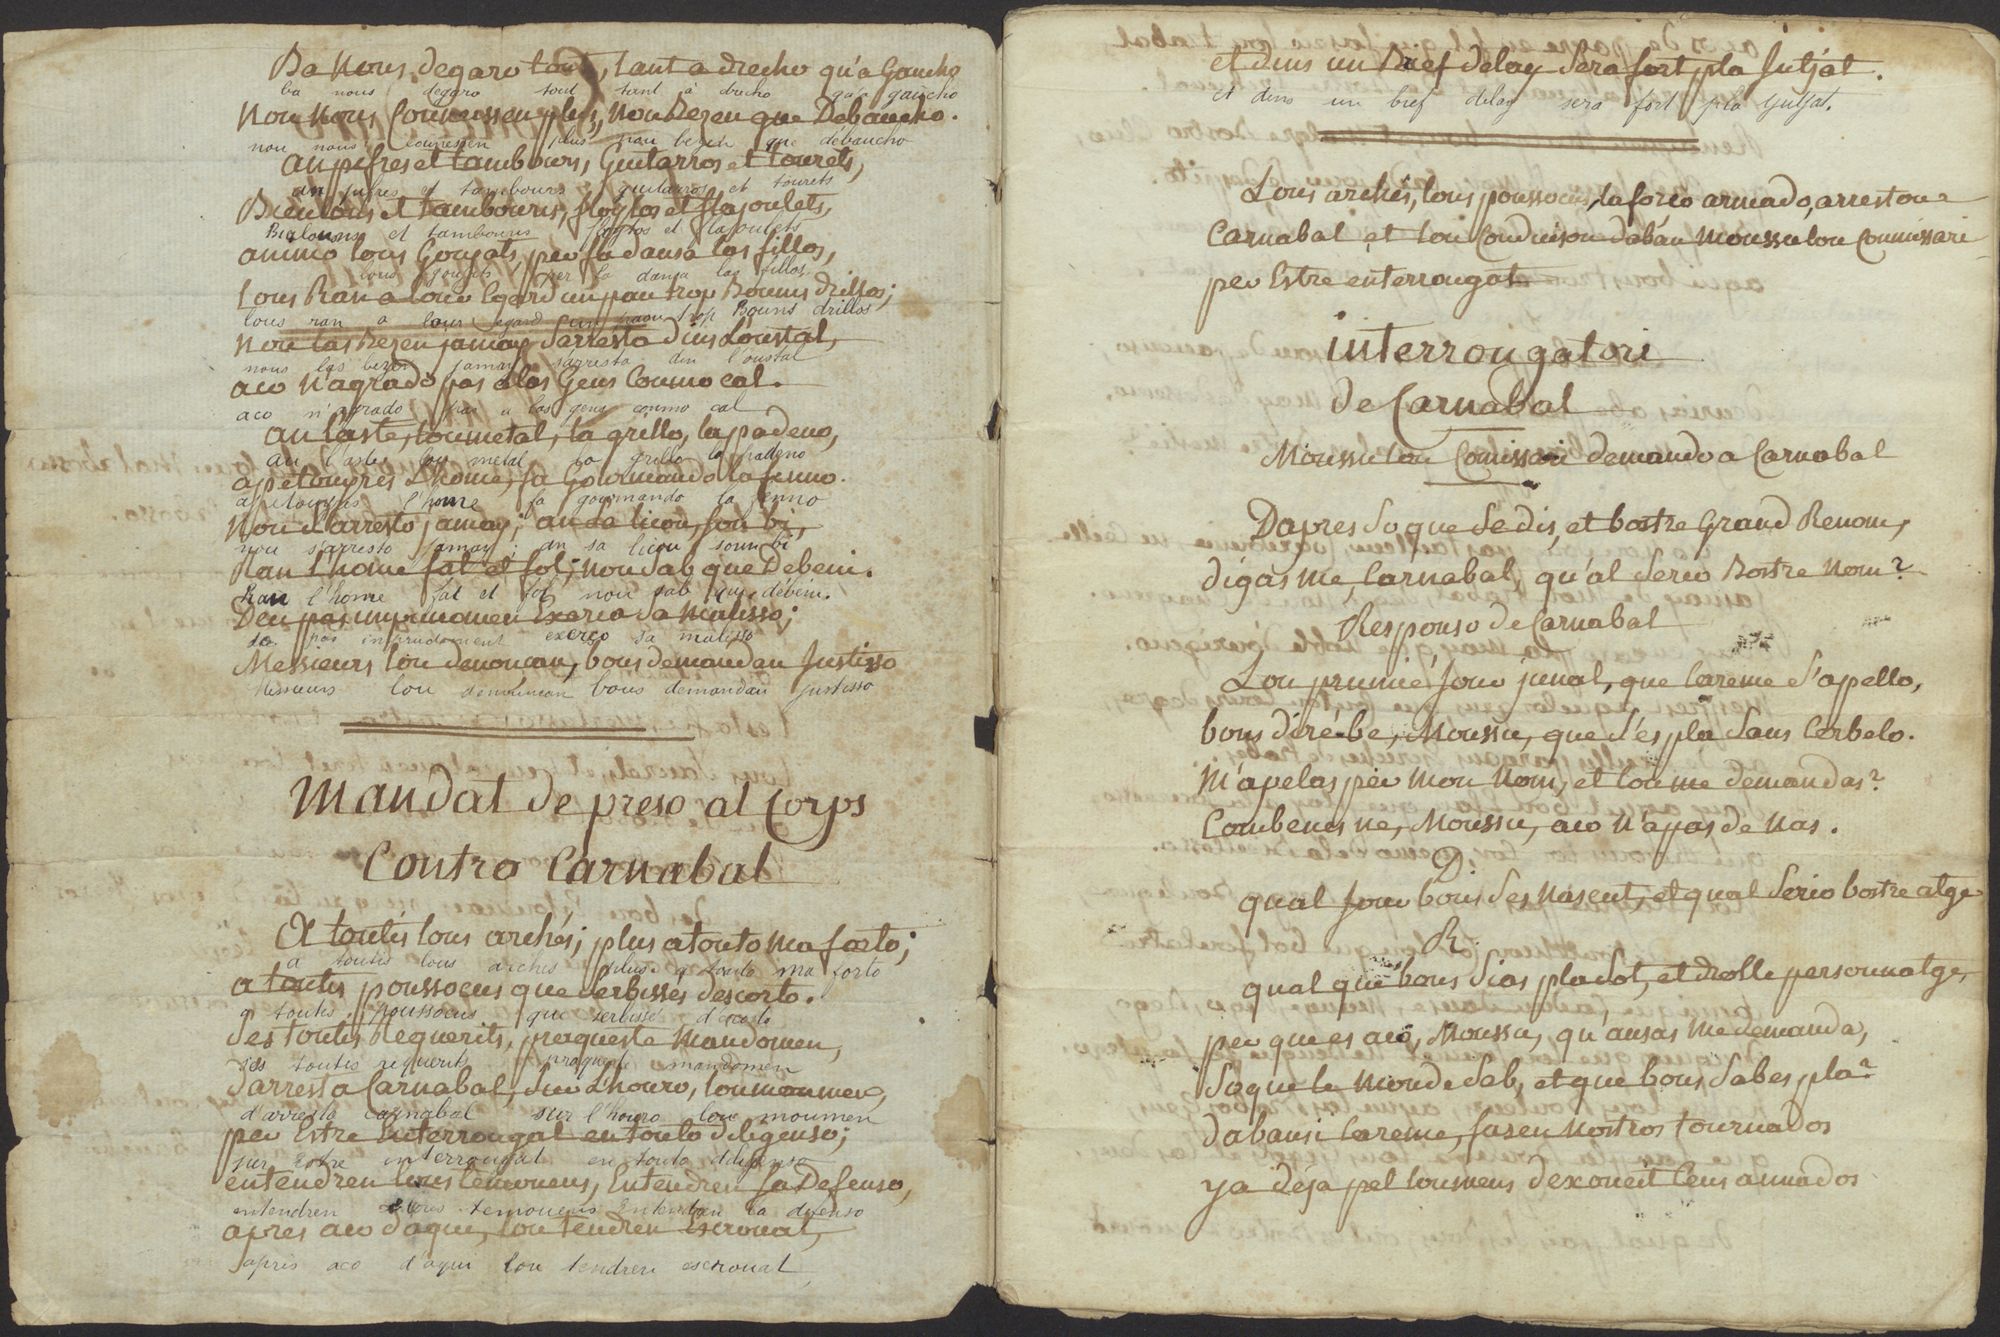 Ba Nous degaro tout, tant a drecho qu'a Gaucho
ba nous degaro tout tant à drecho qu'a gaucho
Nou Nous Counessen plus, Nou Bezen que Debaucho.
nou nous counessen plus nou bezen que débaucho
an pifres et tambours, Guitarros et tourets,
an pifres et tambours guitarros et tourets
Bieulons et tambouris, floytos et flajoulets,
Bialouns et tambouris floytos et flajoulets
animo lous Goujats, per fa dansa las fillos,
lous goujats per fa dansa las fillos
Lous Ran a lour Egard un pau trop Bouns drillos;
lous ran a lour egard un paou trop Bouns drillos
Nou las Bezen jamay S'arresta dins L'oustal,
nous las bezen jamay s'arresta din l'oustal
aco N'agrado pas a las Gens Coumo cal.
aco n'agrado pas a las gens coumo cal
an l'aste, lou metal, la grillo, la padeno,
an l'aste lou metal la grillo la padeno
apetouyris L'home, fa Gourmando la fenno.
apetouyris l'home fa gourmando la fenno
Nou S'arresto jamay; an Sa licou, Soun bi,
nou s'arresto jamay; an sa licou, soun bi
Ran l'home fat et fol; nou Sab que Debeni.
Ran l'home fat et fol nou sab que débeni.
Deu pas imprudomen Exerca Sa Malisso;
do pas imprudoment exerço sa malisso
Messieurs lou denouncan, bous demandan Justisso
Messieurs lou denouncan bous demandan justisso
Mandat de preso al Corps
Contro Carnabal
A toutis lous archés; plus a touto ma forto;
a toutis lous archés plus a touto ma forto
a toutis poussocus que Serbissés d'escorto.
a toutis poussocus que serbisses d'escorto
Ses toutis Requerits, praqueste Mandomen,
ses toutis requerits praqueste mandomen
D'arresta Carnabal, Sur L'houro, lou moumen,
d'arresta carnabal sur l'houro lou moumen
per Estre Interrougat en touto diligenso;
per Estre interrougat en touto diligenso
entendren lous temouens, Entendren Sa Defenso,
entendren lous temouens entendren sa defenso
apres aco d'aqui, lou tendren Escrouat,
après aco d'aqui lou tendren escrouat,
et dins un Bref delay Sera fort pla Jutjat.
et dins un bref delay sera fort pla jutjat.
Lous archés, lous poussocus, la forço armado, arrestou
Carnabal et lou Conduisou daban Moussu lou Commissari
per Estre enterrougat
interrougatori
de Carnabal
Moussu lou Comissari demando a Carnabal
Dapres So que Se dis, et bostre Grand Renom,
digas me, Carnabal, qu'al Serio Bostre Nom?
Responso de Carnabal
Lou prumié Jour junal, que Careme S'apello,
bous diré be, Moussu, que Sés pla Sans Cerbelo.
M'apelas per mon Nom, et lou me demandas?
Coubenes ne, Moussu, aco N'a pas de Nas.
D.
qual Jour bous Ses Nascut, et qual Serio bostre atge
R.
qual qué bous Sias pla Sot, et drolle persounatge,
per que es aco, Moussu, qu'ausas me demanda,
So que le Monde Sab, et que bous Sabes pla?
daban Careme, fasen Nostros tournados
y a déja pel lou mens dexoueit Cens annados